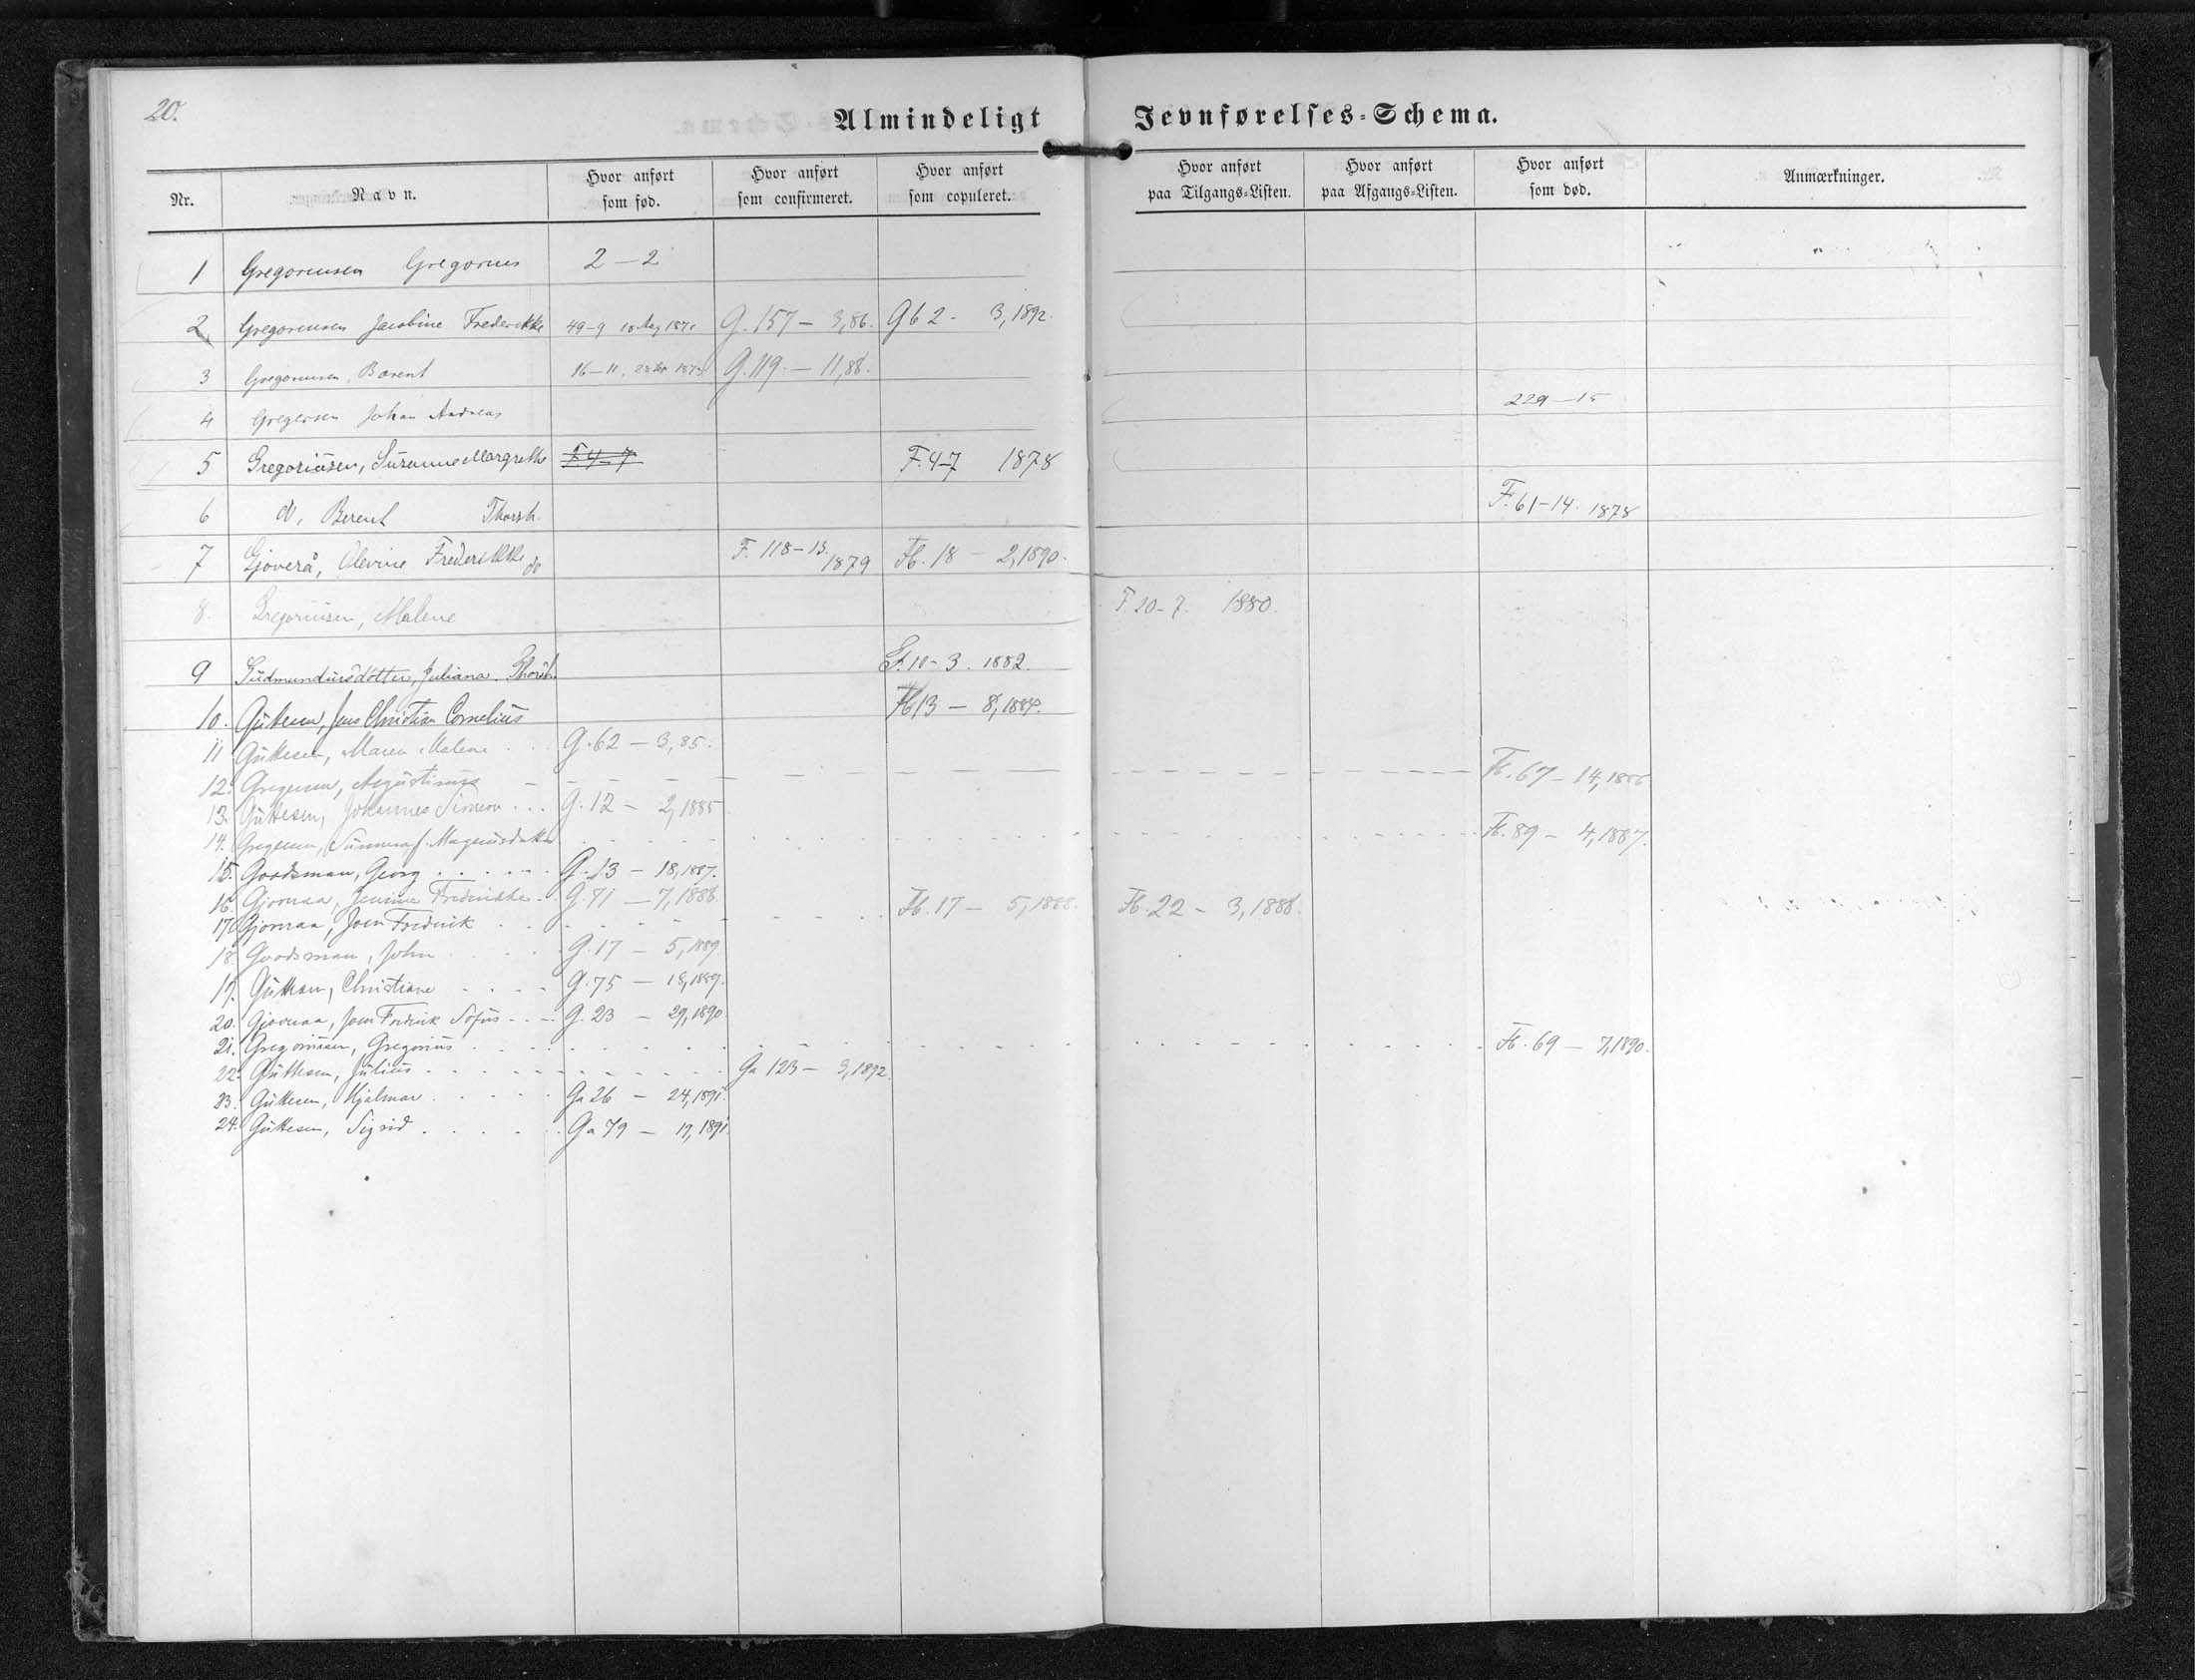 20.
Almindeligt Jevnførelses-Schema.
Nr. Navn. Hvor anført som fød. Hvor anført som confirmeret. Hvor anført som copuleret. Hvor anført paa Tilgangs-Listen. Hvor anført paa Afgangs-Listen. Hvor anført som død. Anmærkninger.
1 Gregoriussen Gregorius 2-2
2 Gregoriussen Jacobine Frederikke 49-9 G. 157 - 3,86. Gb 2 - 3,1892.
3 Gregoriussen, Barent 16-11. G. 119. - 11,88.
4 Gregersen Johan Andreas 229-15
5 Gregoriusen, Susanne Margrethe F. 4-7 F. 4-7 1878
6 do, Berent Thorsh. F. 61-14. 1878
7 Gjoverå, Olevine Frederikke do F. 118-13. 1879 Fb. 18 - 2,1890.
8. Gregoriusen, Malene F. 20-7. 1880.
9 Gudmundursdotter, Juliana. Thorsh. 10-3. 1882.
10. Guttesen, Jens Christian Cornelius Fb 13 - 8,
11 Guttesen, Maren Malene G. 62 - 3,85.
12. Gregersen, Augustinus Fb. 67 - 14,1886
13. Guttesen, Johannes Simeon G. 12 - 2,1885
14. Gregersen, Sunneva f. Magnusdatter Fb. 89 - 4,1887.
15. Goodsman, Georg G. 13 - 18,1887.
16. Gjovraa, Jensine Fredrikke G. 71 - 7,1888.
17. Gjovraa, Joen Fredrik Fb. 17 - 5,1888. Fb. 22 - 3,1888.
18. Goodsman, John G. 17 - 5,1889
19. Guttesen, Christiane G. 75 - 18,1889.
20. Gjovraa, Joen Fredrik Sofus G. 23 - 29,1890
21. Gregoriusen, Gregorius Fb. 69 - 7,1890.
22. Guttesen, Julius Ga 123 - 3,1892.
23. Guttesen, Hjalmar Ga 26 - 24,1891.
24. Guttesen, Sigrid Ga 79 - 19,1891.